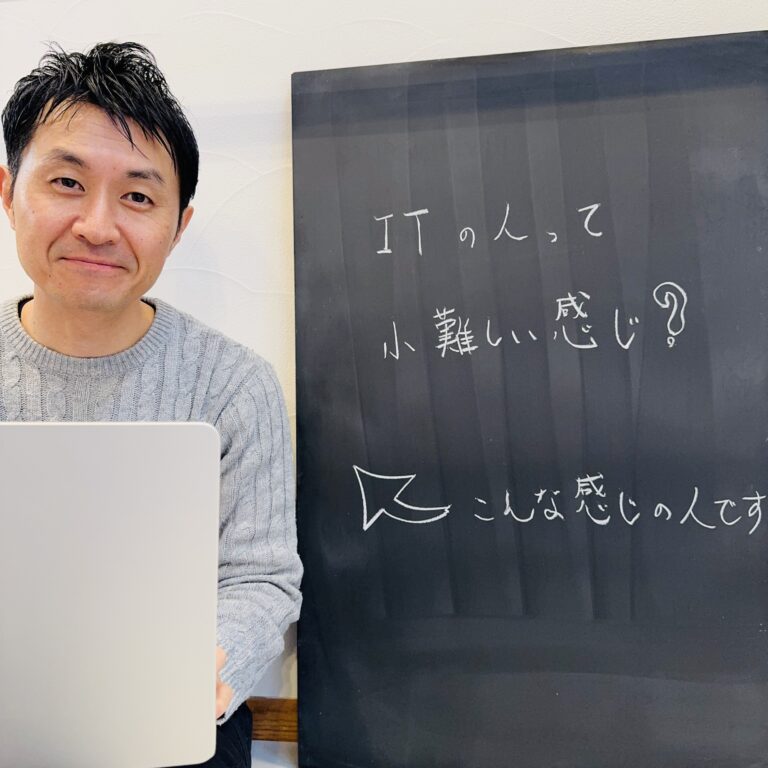 ITの人って
小難しい感じ?
こんな感じの人です